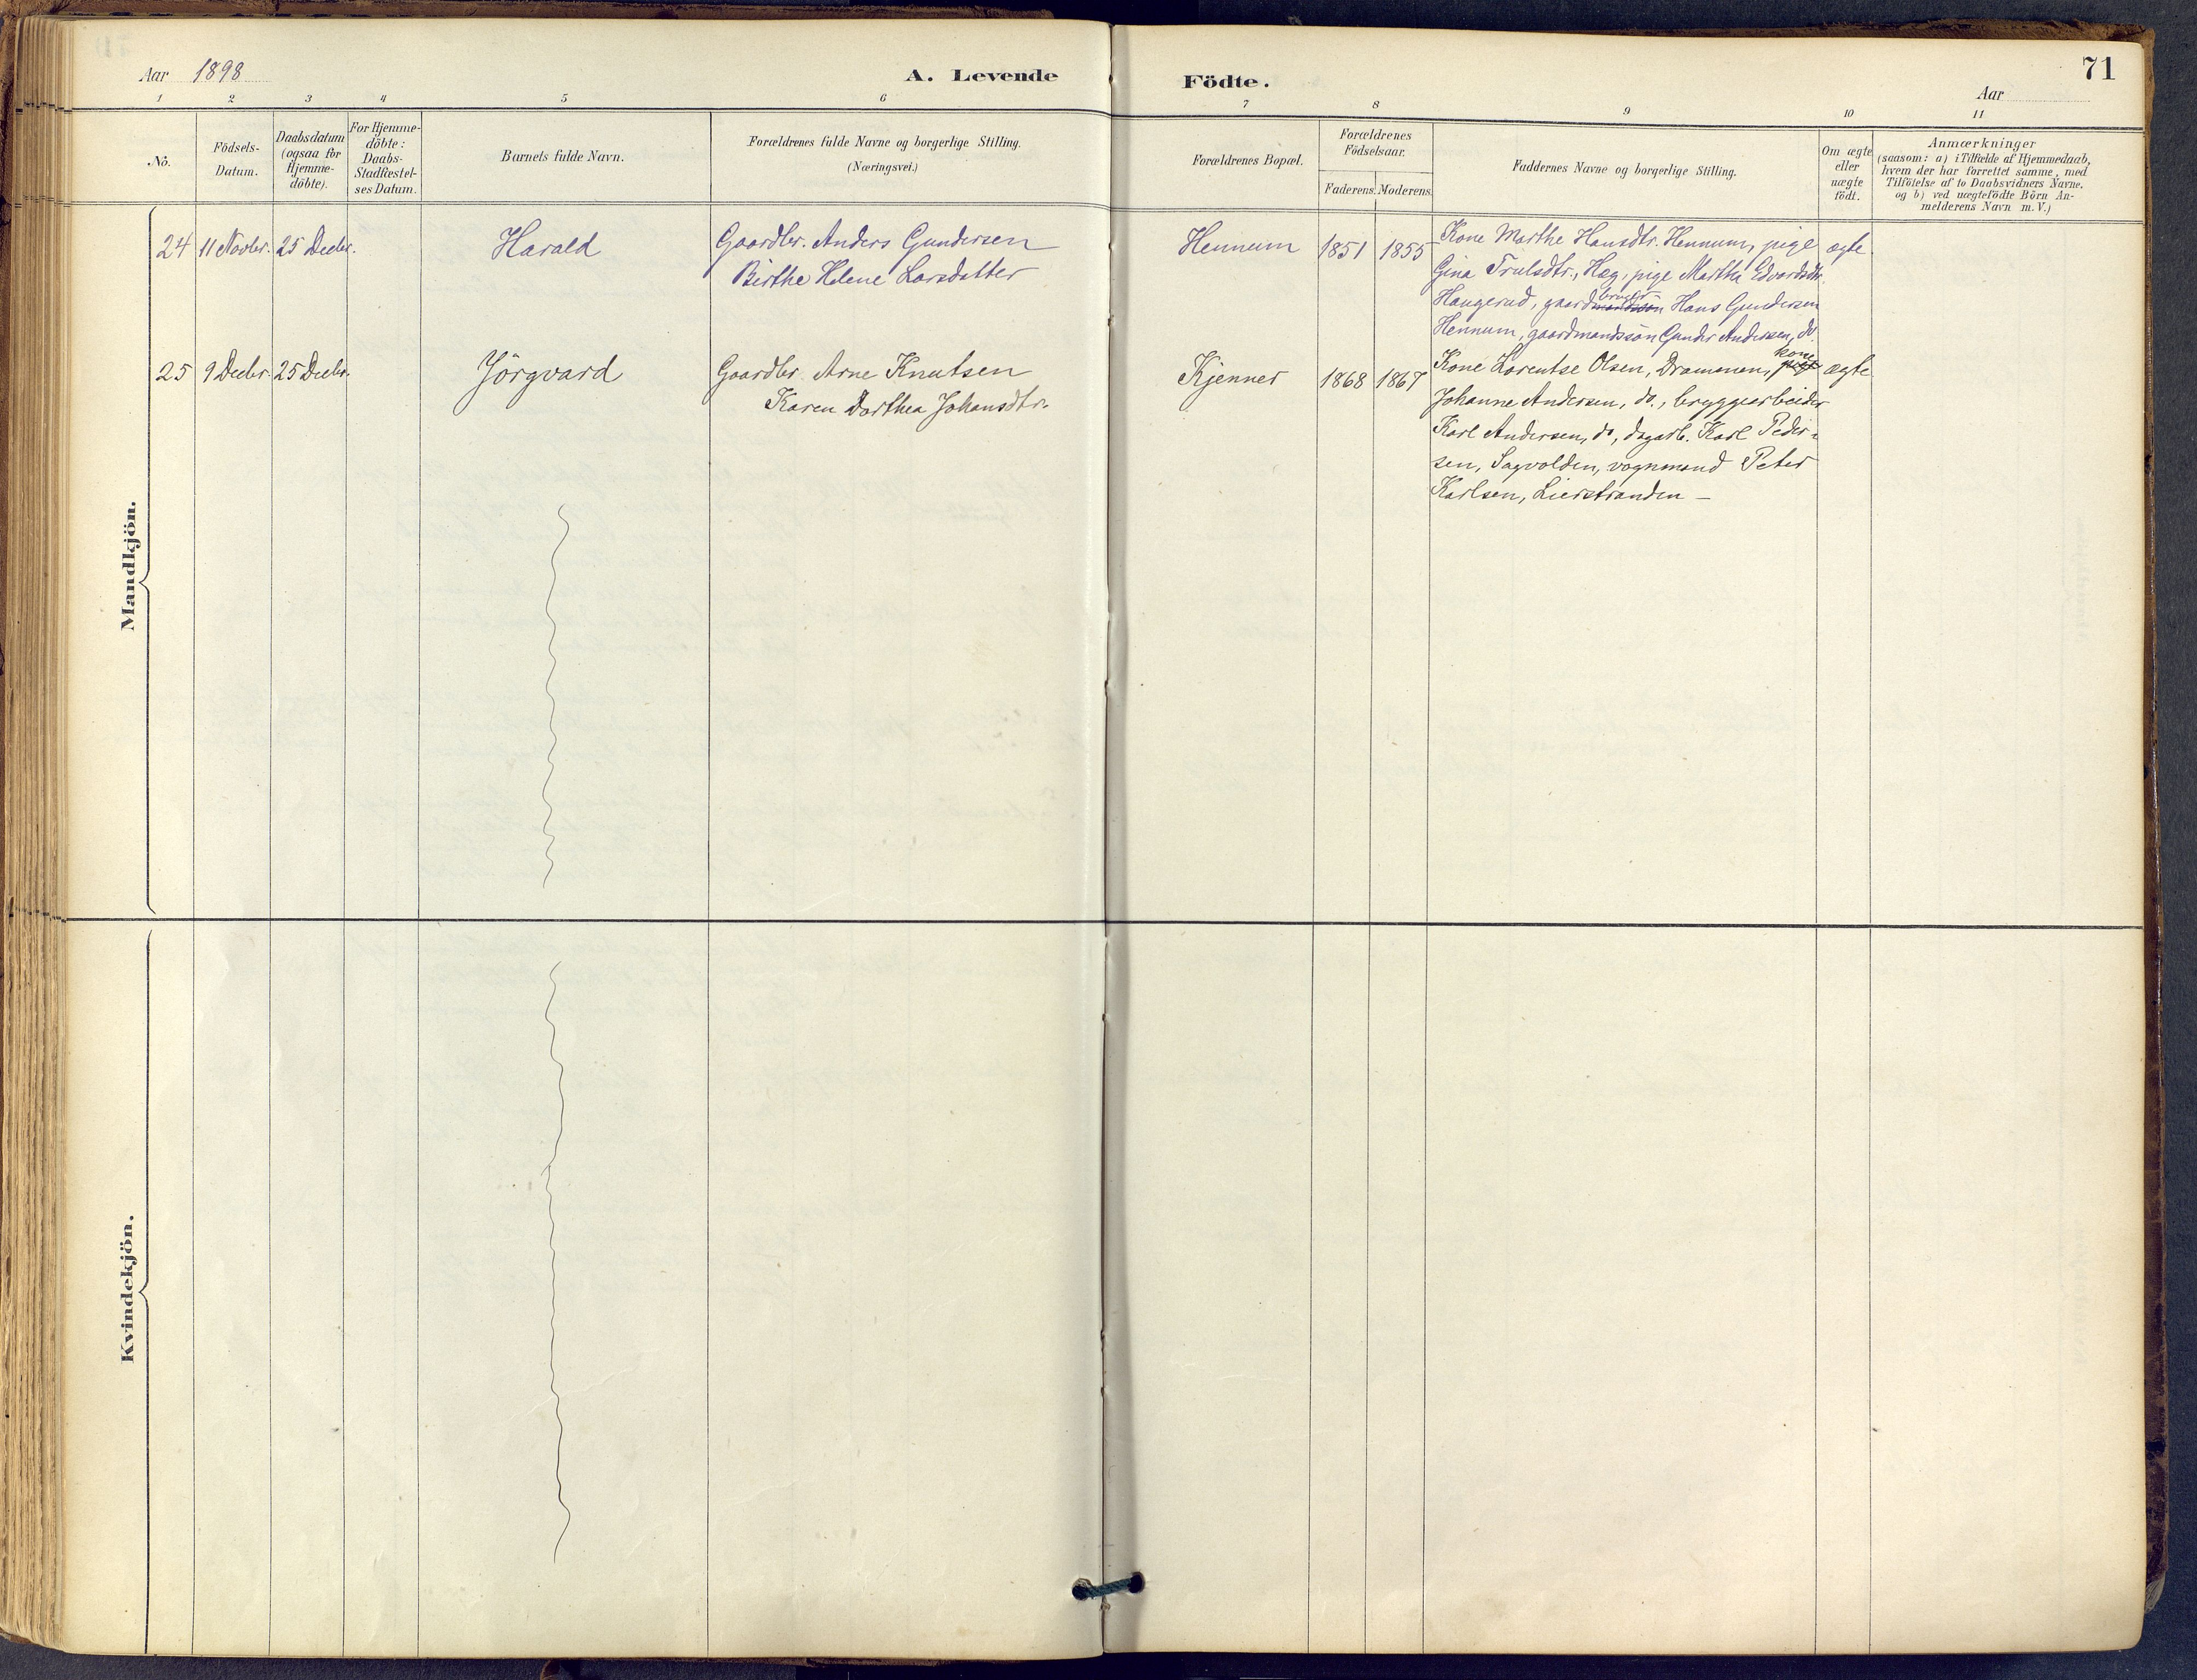 71
Aar 1898
A. Levende Födte.
Aar
1 2 3 4 5 6 7 8 9 10 11
No.
Födsels-
Datum.
Daabsdatum
(ogsaa for
Hjemme-
döbte).
For Hjemme-
döbte:
Daabs-
Stadfæstel-
ses Datum.
Barnets fulde Navn.
Forældrenes fulde Navne og borgerlige Stilling.
(Næringsvei.)
Forældrenes Bopæl.
Forældrenes
Födselsaar.
Faderens. Moderens.
Faddernes Navne og borgerlige Stilling.
Om ægte
eller
uægte
födt.
Anmærkninger
(saasom: a) i Tilfælde af Hjemmedaab,
hvem der har forrettet samme, med
Tilföielse af to Daabsvidners Navne.
og b) ved uægtefödte Börn An-
melderens Navn m. V.)
Mandkjön.
24 11 Novbr. 25 Decbr. Harald
Gaardbr. Anders Gundersen
Birthe Helene Larsdatter
Hennum 1851 1855
Kone Marthe Hansdtr. Hennum, pige
Gina Trulsdtr., Hæg, pige Martha Edvardsdtr.
Haugerud, gaardmandssön bruger Hans Gundersen
Hennum, gaardmandssön Gunder Andersen, do.
ægte
25 9 Decbr. 25 Decbr. Jörgvard
Gaardbr. Arne Knutsen
Karen Dorthea Johansdtr.
Kjenner 1868 1867
Kone Lorentse Olsen, Drammen, pige kone
Johanne Andersen, do., bryggearbeider
Karl Andersen, do, dagarb. Karl Peder-
sen, Sagvolden, vognmand Peter
Karlsen, Lierstranden –
ægte
Kvindekjön.